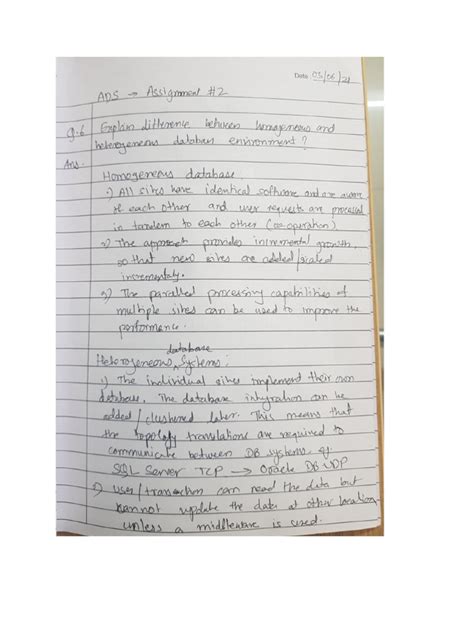 Date 03/06/21
ADS → Assignment #2
Q.6 Explain difference between homogeneous and
heterogeneous database environment?
Ans. Homogeneous database.
1) All sites have identical software and are aware
of each other and user requests are processed
in tandem to each other (co-operation).
2) The approach provides incremental growth,
so that new sites are added/scaled
incrementaly.
3) The parallel processing capabilities of
multiple sites can be used to improve the
performance.
Heterogeneous database Systems:
1) The individual sites implement their own
database. The database intgration can be
added/clustered later. This means that
the topology translations are required to
communicate between DB systems. eg
SQL Server TCP → Oracle DB UDP
2) user/transaction can read the data but
cannot update the data at other location
unless a middleware is used.